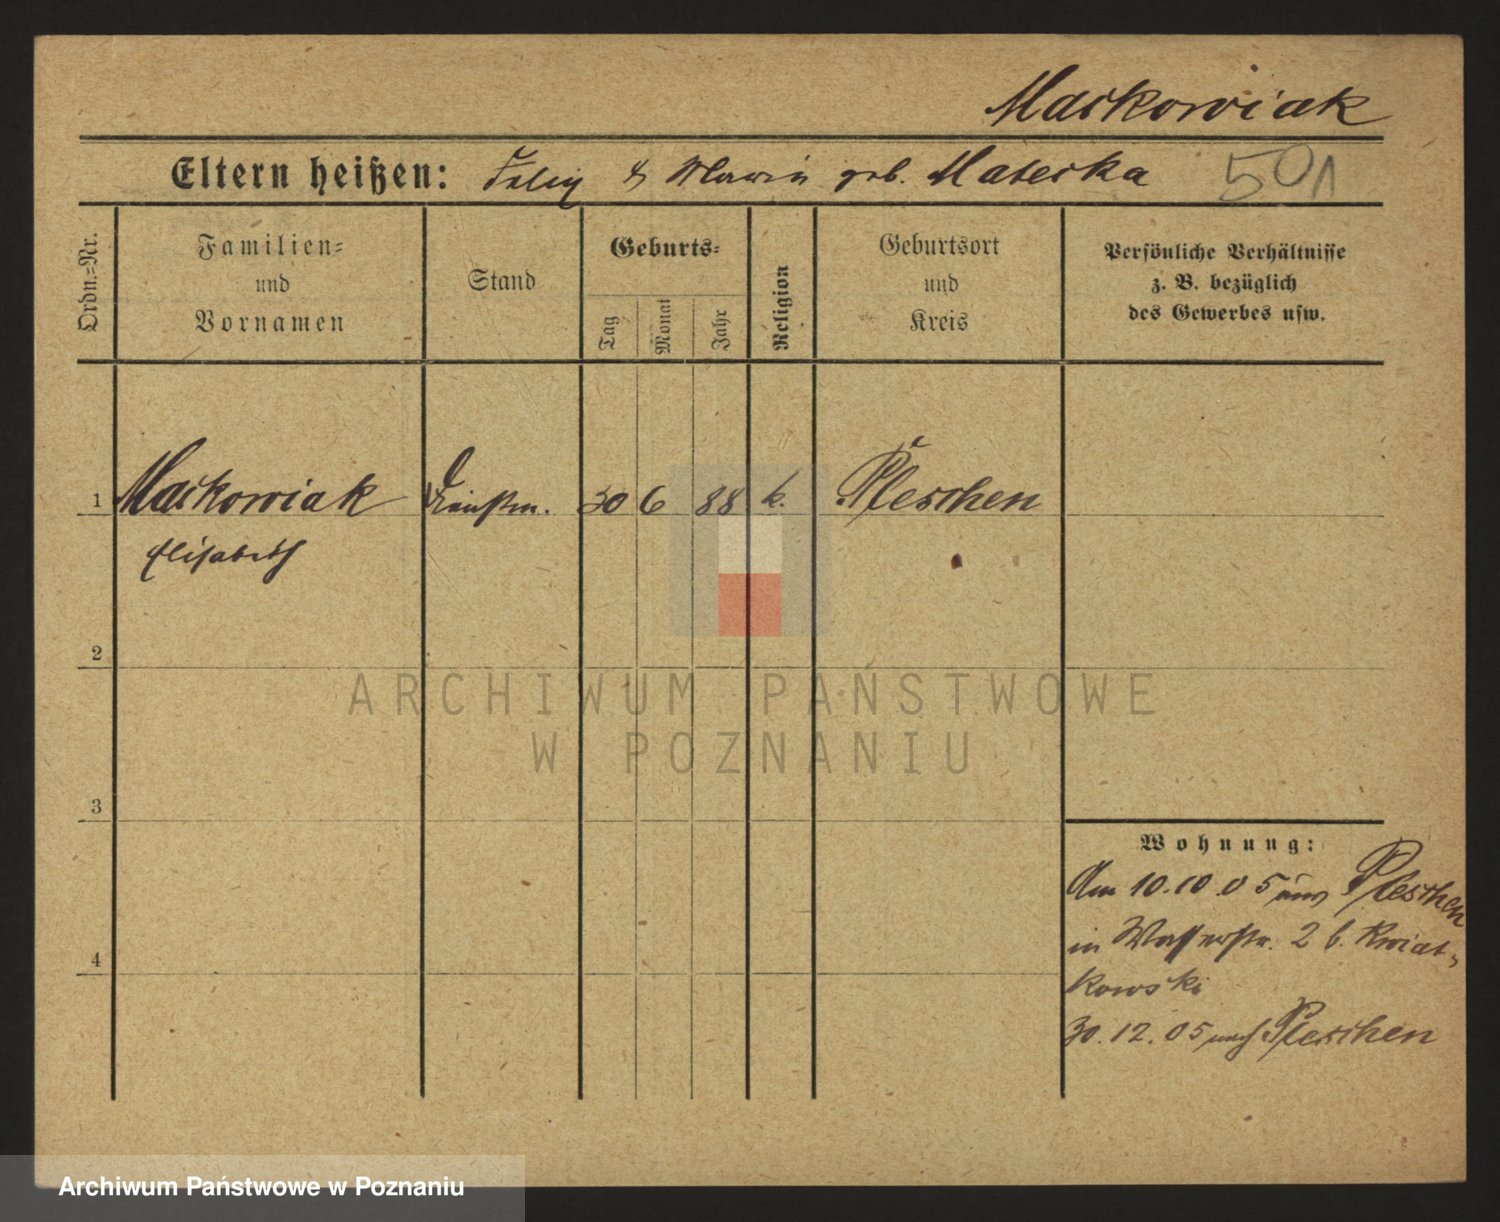 Markowiak
Eltern heißen: Felix & Maria geb. Materka 501
Ordn.=Nr.
Familien=
und
Vornamen
Stand
Geburts=
Tag
Monat
Jahr
Religion
Geburtsort
und
Kreis
Persönliche Verhältnisse
z. B. bezüglich
des Gewerbes usw.
1 Markowiak 30 6 88 k. Pleschen
Elisabeth
2
ARCHIWUM PAŃSTWOWE
W POZNANIU
3
Wohnung:
Am 10.10.05 aus Pleschen
in Wasserstr. 2 b. Kwiat-
4
kowski
30.12.05 nach Pleschen
Archiwum Państwowe w Poznaniu